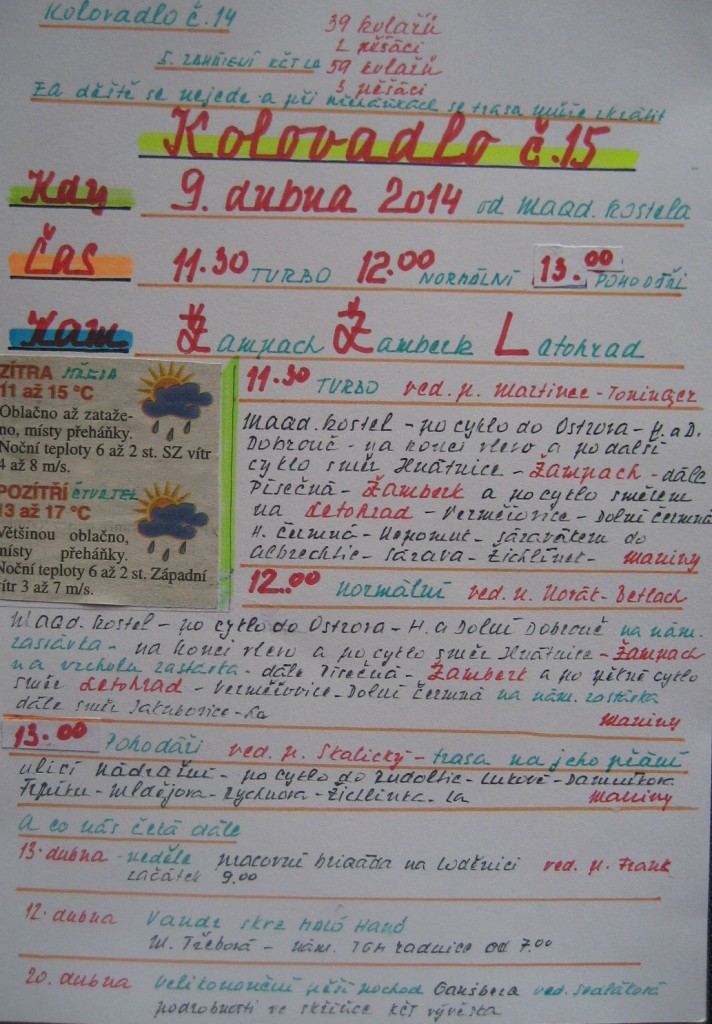 Kolovadlo č.14
39 kolařů
2 pěšáci
5. zahnízení KČT LA 59 kolařů
3 pěšáci
Za deště se nejede a při přeháňkách se trasa může zkrátit
Kolovadlo č.15
Kdy 9. dubna 2014 od Magd. kostela
Čas 11.30 TURBO 12.00 NORMÁLNÍ 13.00 POHODÁŘI
Kam Žampach Žamberk Letohrad
ZÍTRA STŘEDA
11 až 15 °C
Oblačno až zataže-
no, místy přeháňky.
Noční teploty 6 až 2 st. SZ vítr
4 až 8 m/s.
POZÍTŘÍ ČTVRTEK
13 až 17 °C
Většinou oblačno,
místy přeháňky.
Noční teploty 6 až 2 st. Západní
vítr 3 až 7 m/s.
11.30 TURBO ved. p. Martinec - Toninger
Magd. kostel - po cyklo do Ostrova - H. a D.
Dobrouč - na konci vlevo a po další
cyklo směr Hnátnice - Žampach - dále
Písečná - Žamberk a po cyklo směrem
na Letohrad - Verměřovice - Dolní Čermná
H. Čermná - Nepomuk - do
Albrechtic - Sázava - Žichlínek - Mariny
12.00 Normální ved. p. Horák - Betlach
Magd. kostel - po cyklo do Ostrova - H. a Dolní Dobrouč na nám.
zastávka - na konci vlevo a po cyklo směr Hnátnice - Žampach
na vrcholu zastávka - dále Písečná - Žamberk a po pěkné cyklo
směr Letohrad - Verměřovice - Dolní Čermná na nám. zastávka
dále směr Jakubovice - La Mariny
13.00 Pohodáři ved. p. Skalický - trasa na jeho přání
ulicí Nádražní - po cyklo do Rudoltic - Luková - Damníkova
Trpíku - Mladějova - Rychnova - Žichlínka - La Mariny
A co nás čeká dále
13. dubna - neděle pracovní brigáda na loděnici ved. p. Frank
začátek 9.00
12. dubna Vandr skrz Maló Hanó
M. Třebová - nám. TGM radnice od 7.00
20. dubna Velikonoční pěší pochod ved.
podrobnosti ve skříňce KČT vývěska